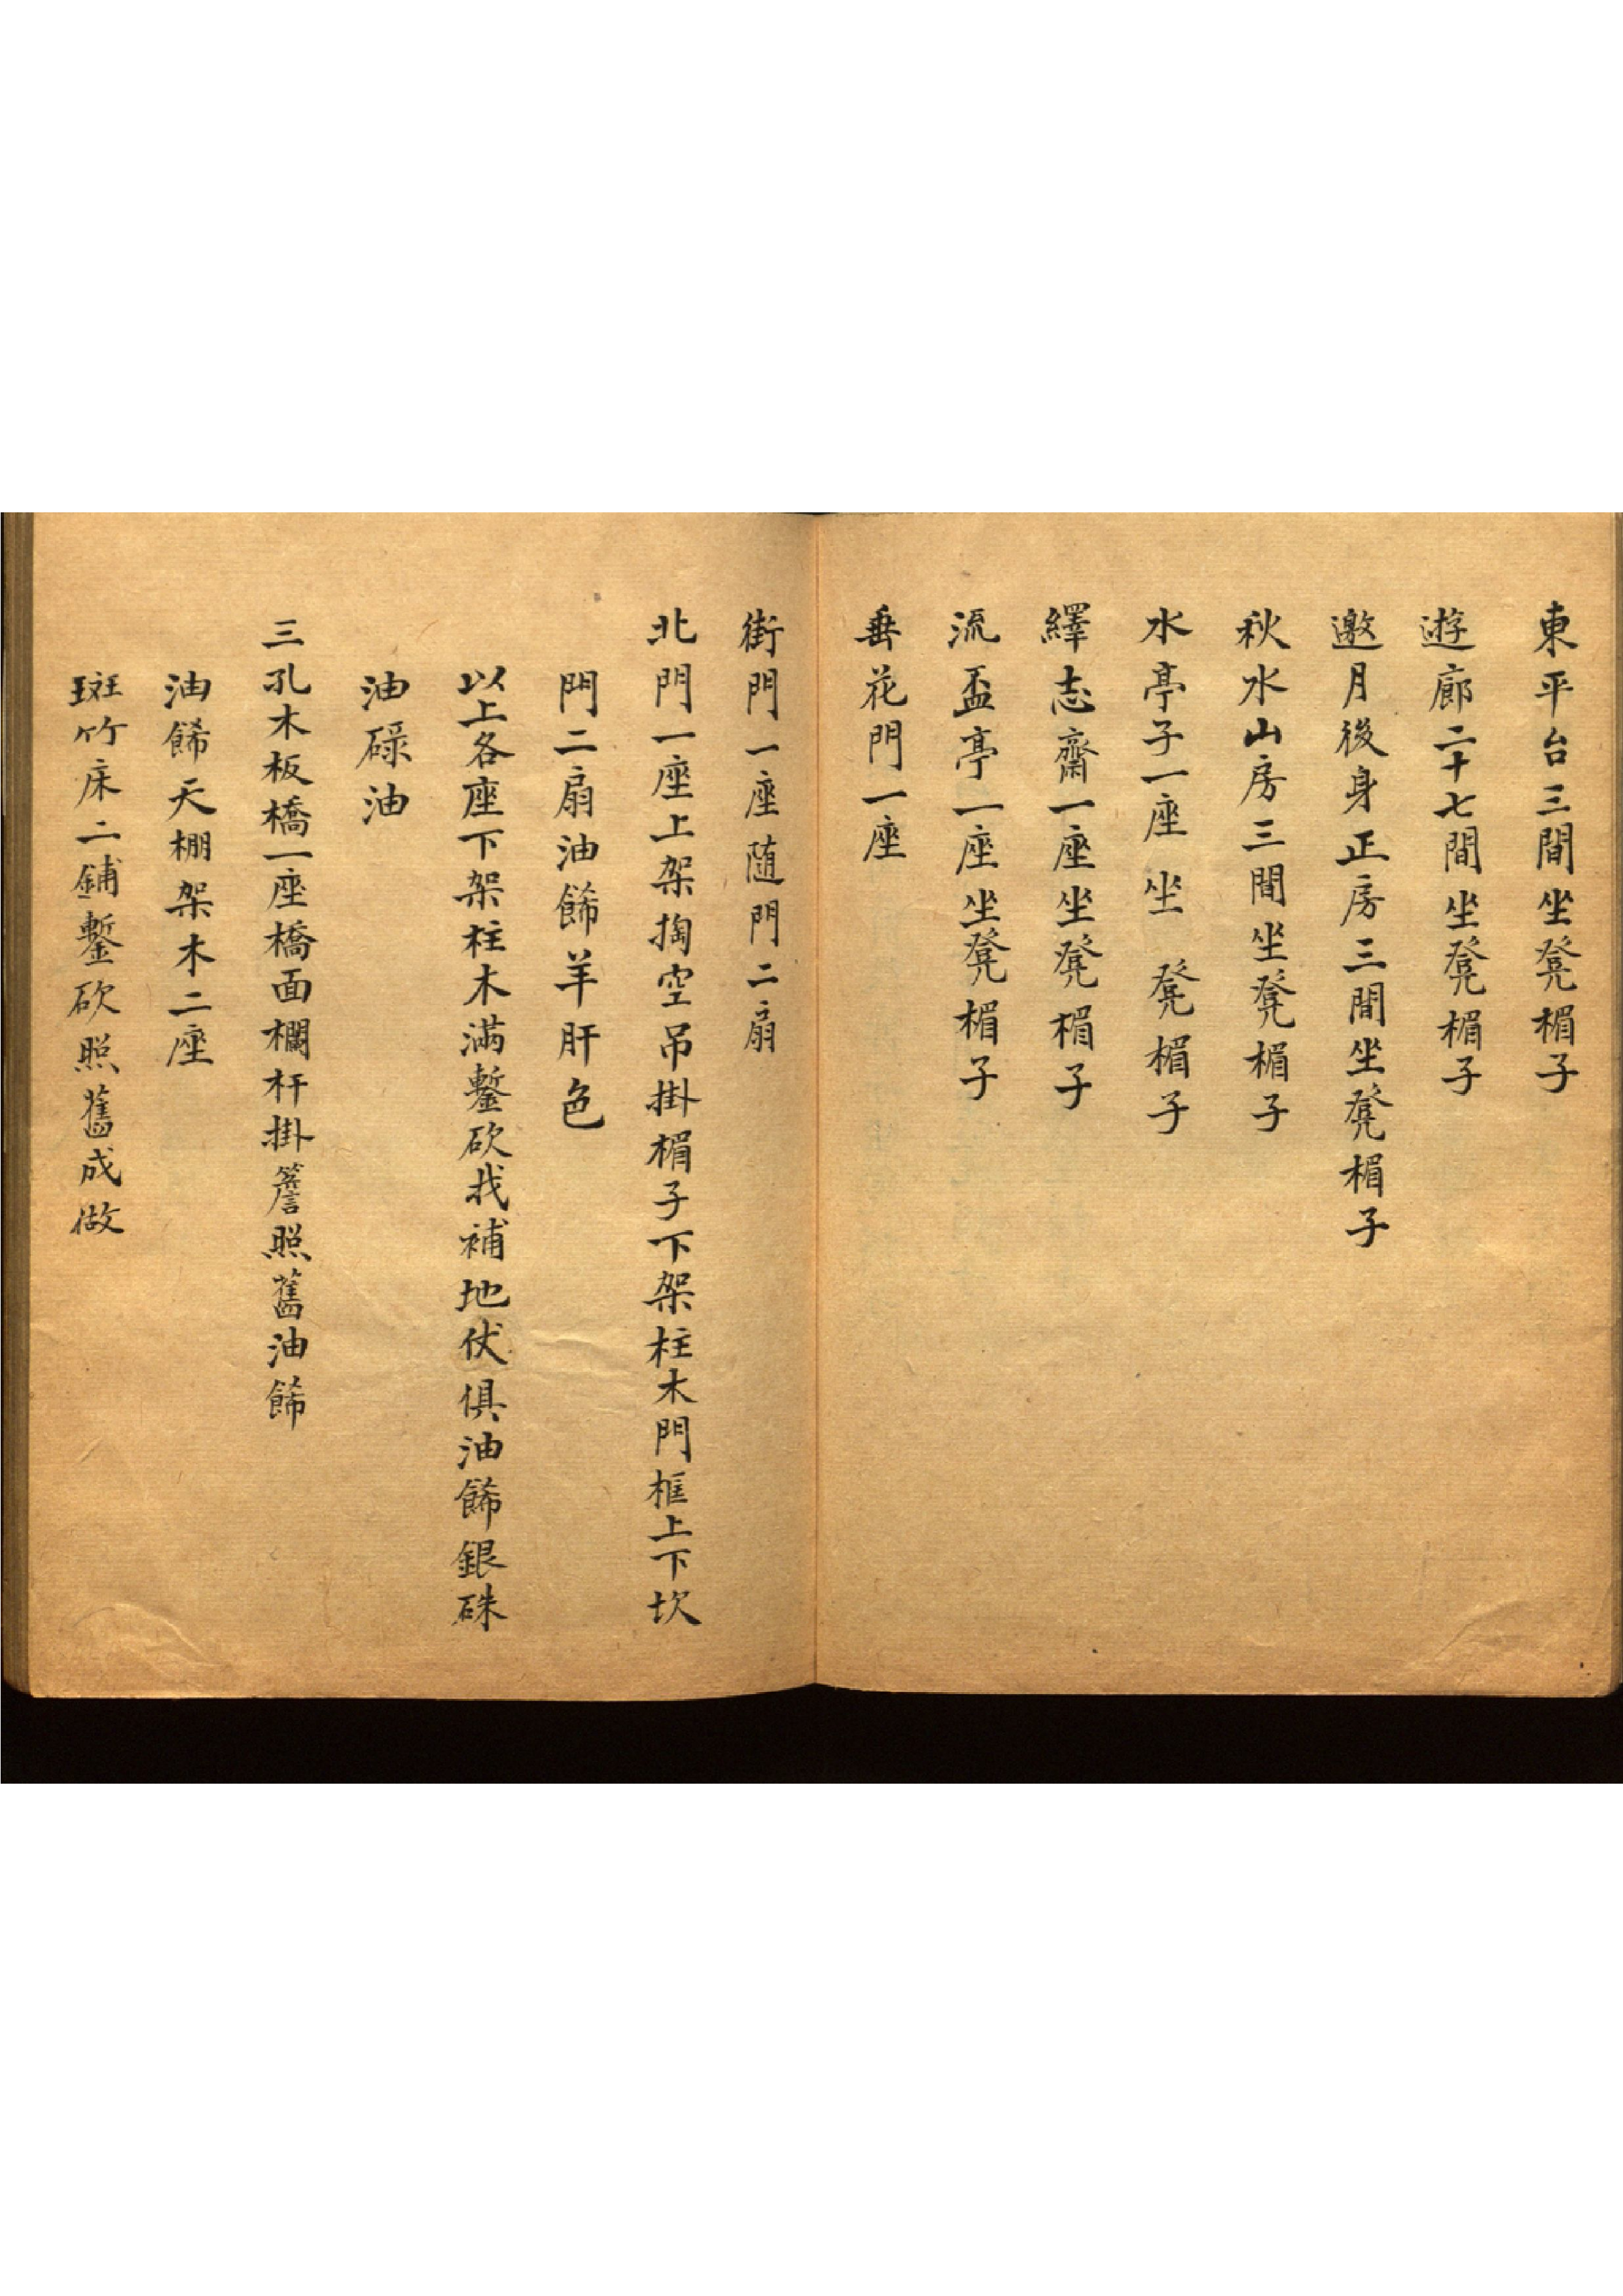 東平台三間坐凳楣子
遊廊二十七間坐凳楣子
邀月後身正房三間坐凳楣子
秋水山房三間坐凳楣子
水亭子一座坐凳楣子
繹志齋一座坐凳楣子
流盃亭一座坐凳楣子
垂花門一座
街門一座随門二扇
北門一座上架掏空吊掛楣子下架柱木門框上下坎
門二扇油餙羊肝色
以上各座下架柱木滿鏨砍找補地伏俱油餙銀硃
油碌油
三孔木板橋一座橋面欄杆掛簷照舊油餙
油餙天棚架木二座
斑竹床二鋪鏨砍照舊成做